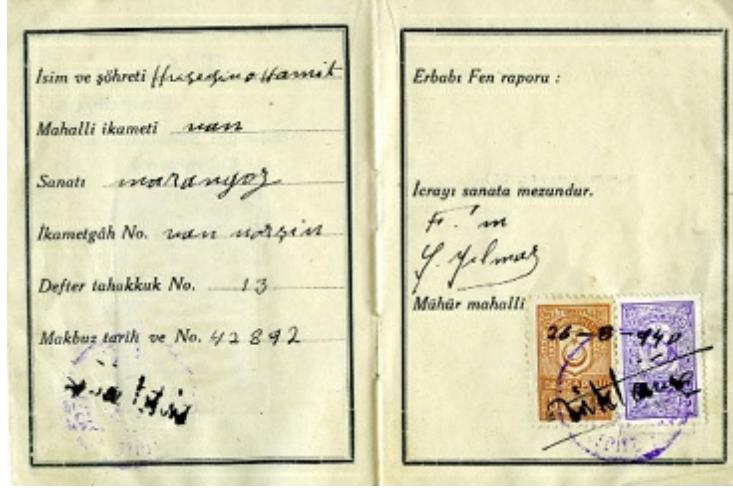 İsim ve şöhreti Hamit
Mahalli ikameti van
Sanatı marangoz
İkametgâh No. van
Defter tahakkuk No. 13
Makbuz tarih ve No. 42892
Erbabı Fen raporu :
İcrayı sanata mezundur.
Y. Yılmaz
Mühür mahalli
26-8-940